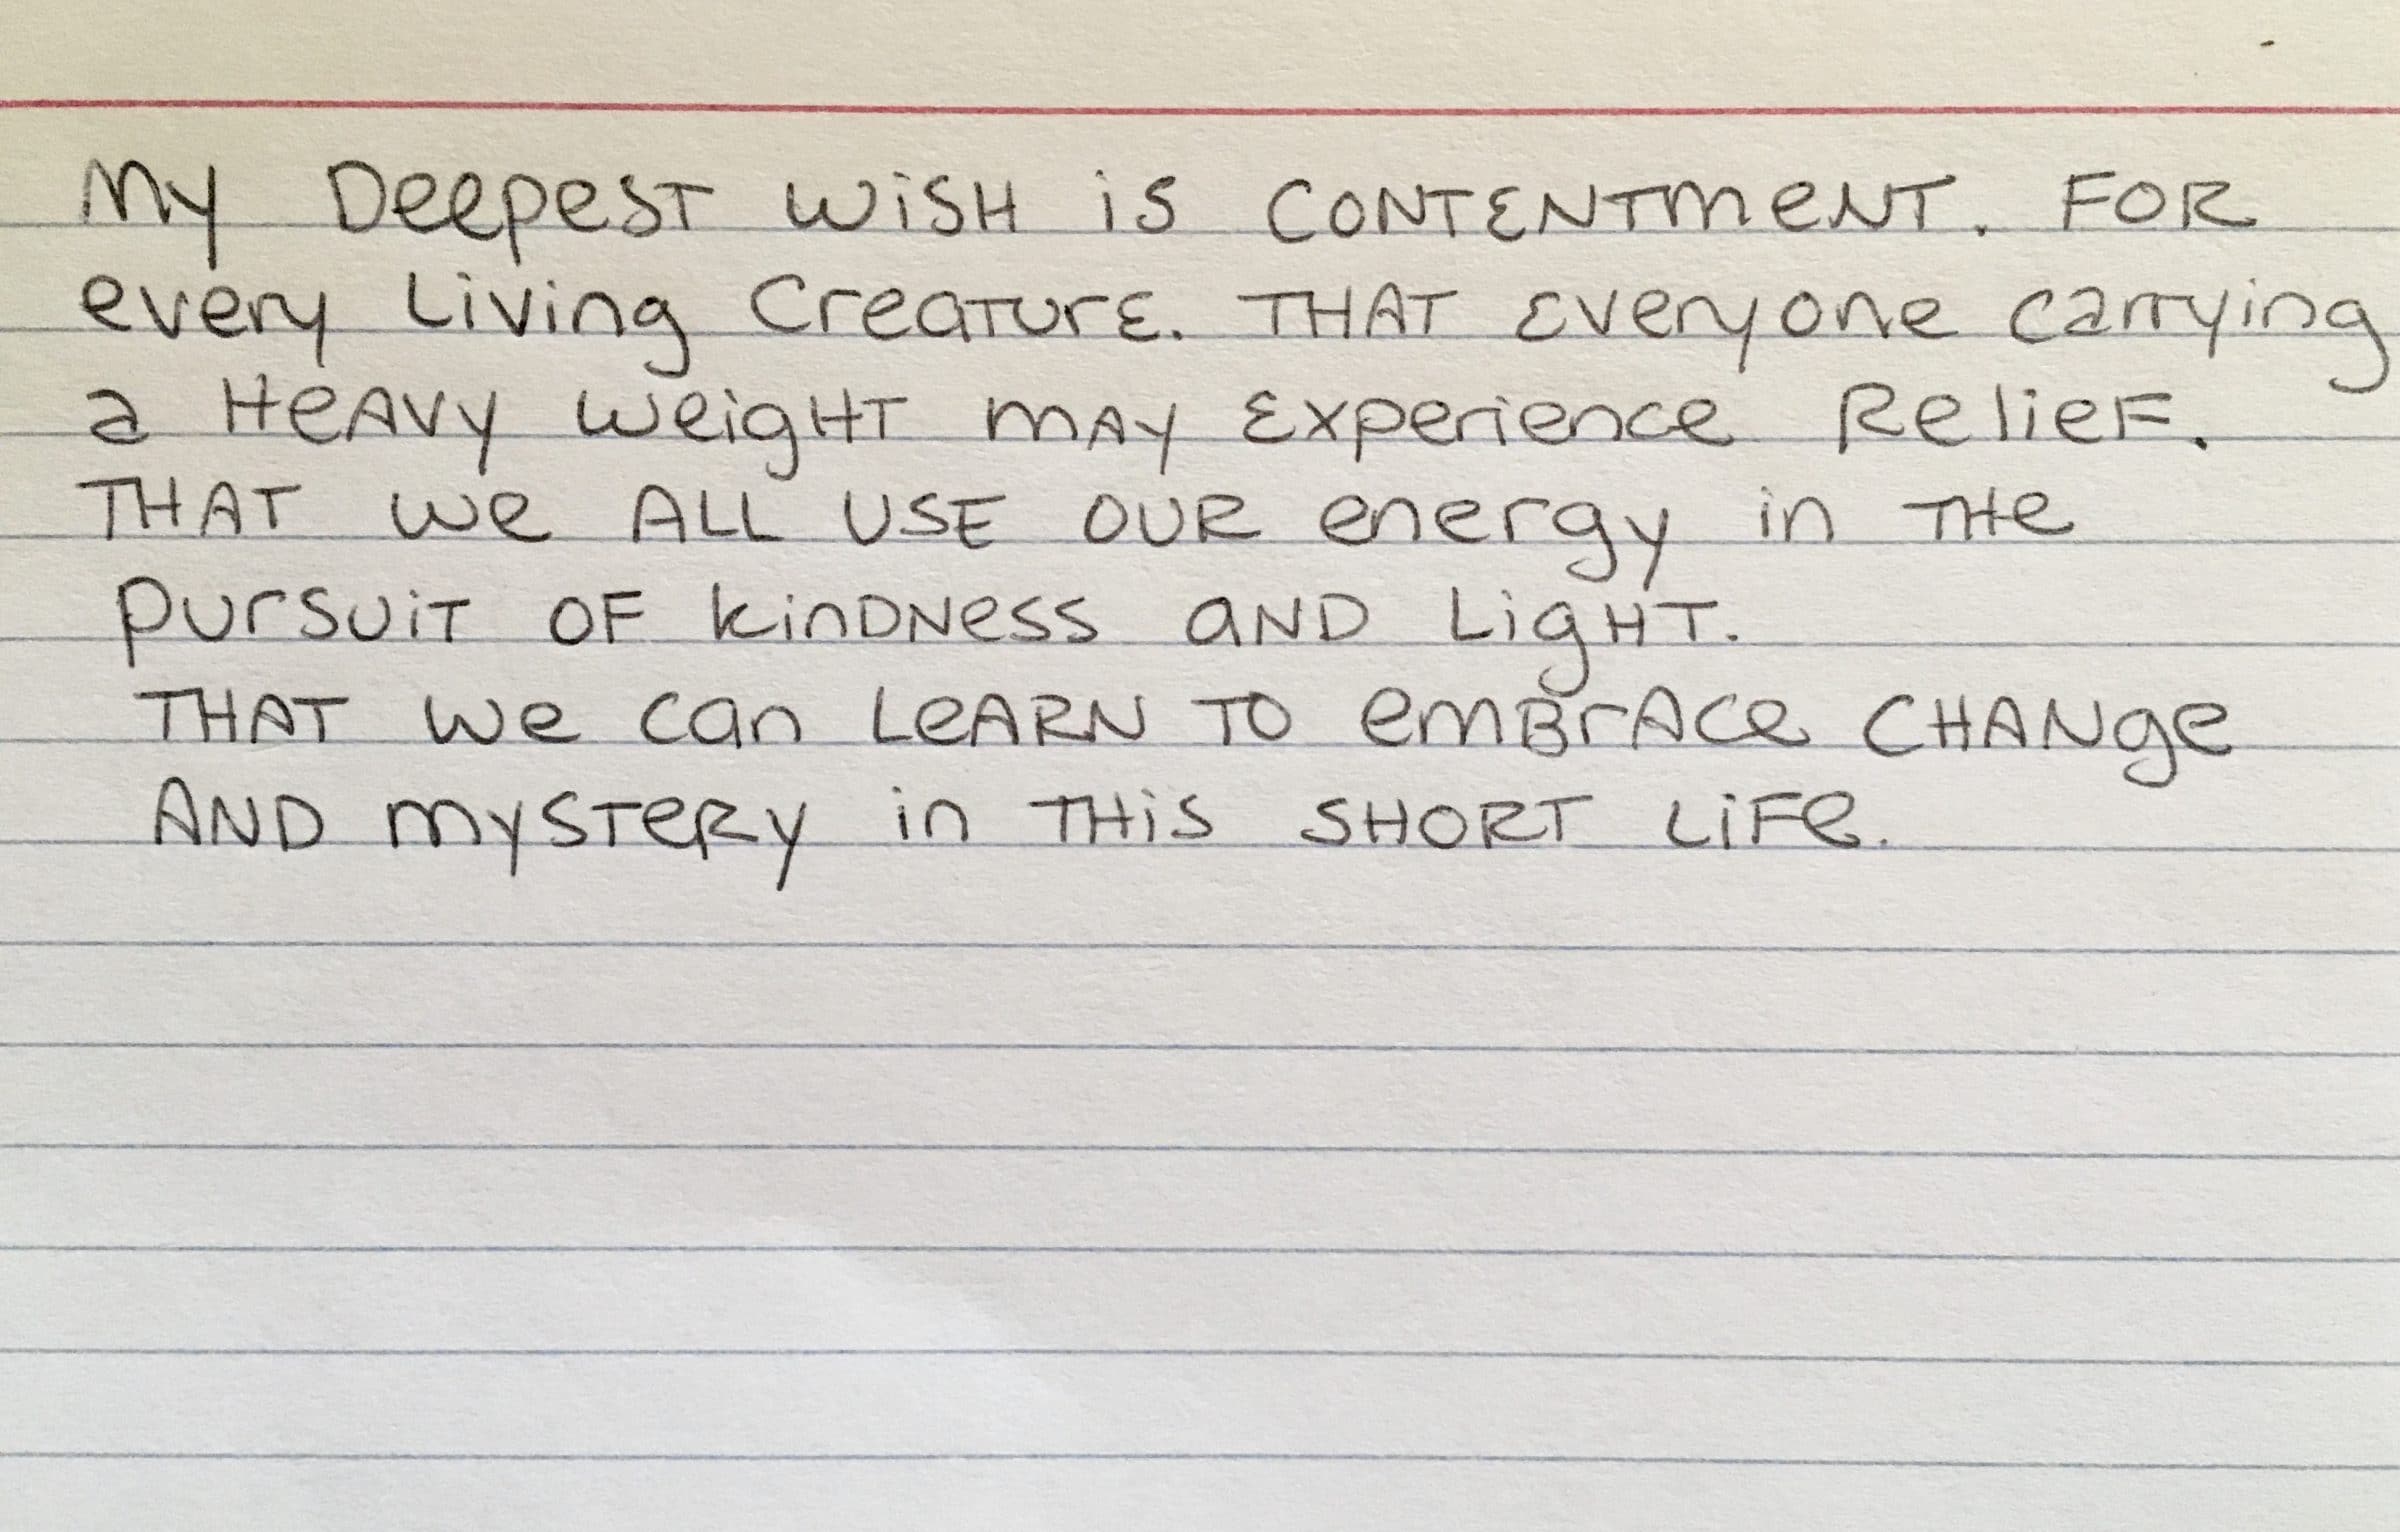 My Deepest wish is contentment. For
every living creature. That everyone carrying
a heavy weight may experience relief.
That we all use our energy in the
pursuit of kindness and light.
That we can learn to embrace change
and mystery in this short life.